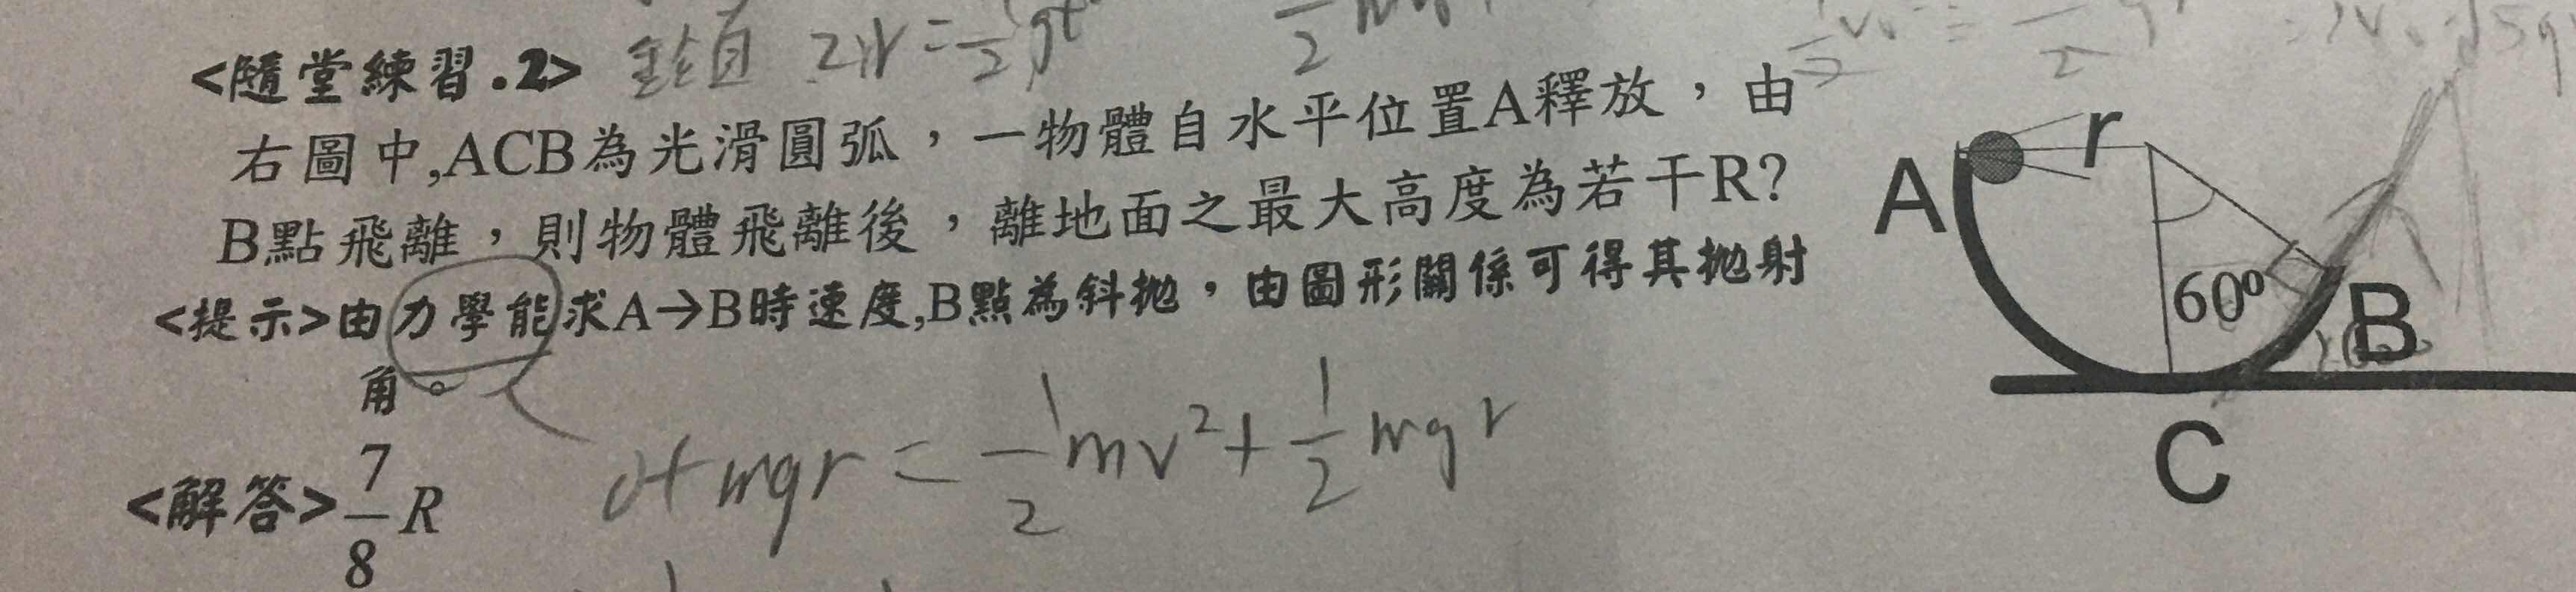 <隨堂練習.2> 鉛直 2r=1/2gt
右圖中,ACB為光滑圓弧，一物體自水平位置A釋放，由
B點飛離，則物體飛離後，離地面之最大高度為若干R?
<提示>由力學能求A→B時速度,B點為斜拋，由圖形關係可得其拋射
角。
0+mgr=1/2mv²+1/2mgr
<解答>7/8R
A
r
60°
B
C